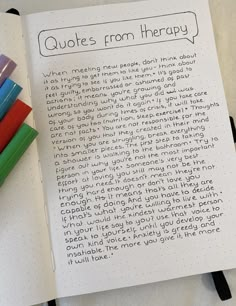 Quotes from therapy
When meeting new people, don't think about
it as trying to get them to like you, think about
it as trying to see if you like them. * It's good to
feel guilty, embarrassed or ashamed of past
actions, it means you're growing and
understanding why what you did was
wrong, so you won't do it again * If you take care
of your body, it will make it easier to take
care of you too (nutrition, sleep, exercise) * Thoughts
are not facts * You are not responsible for the
version of you that they created in their mind
* When you are struggling, break everything
into smaller steps. The first step to taking
a shower is walking to the bathroom * Try to
figure out why you're not the most important
person in your life * Someone's very best
effort at loving you still may not be the
thing you need. It doesn't mean they're not
trying hard enough or don't love you
enough. It means that's all they are
capable of doing. And you have to decide
if that's what you're willing to live with *
In what would the kindest, warmest person
in your life say to you? use that voice to
speak to yourself, until you develop your
own kind voice. * Anxiety is greedy and
insatiable. The more you give it, the more
it will take.